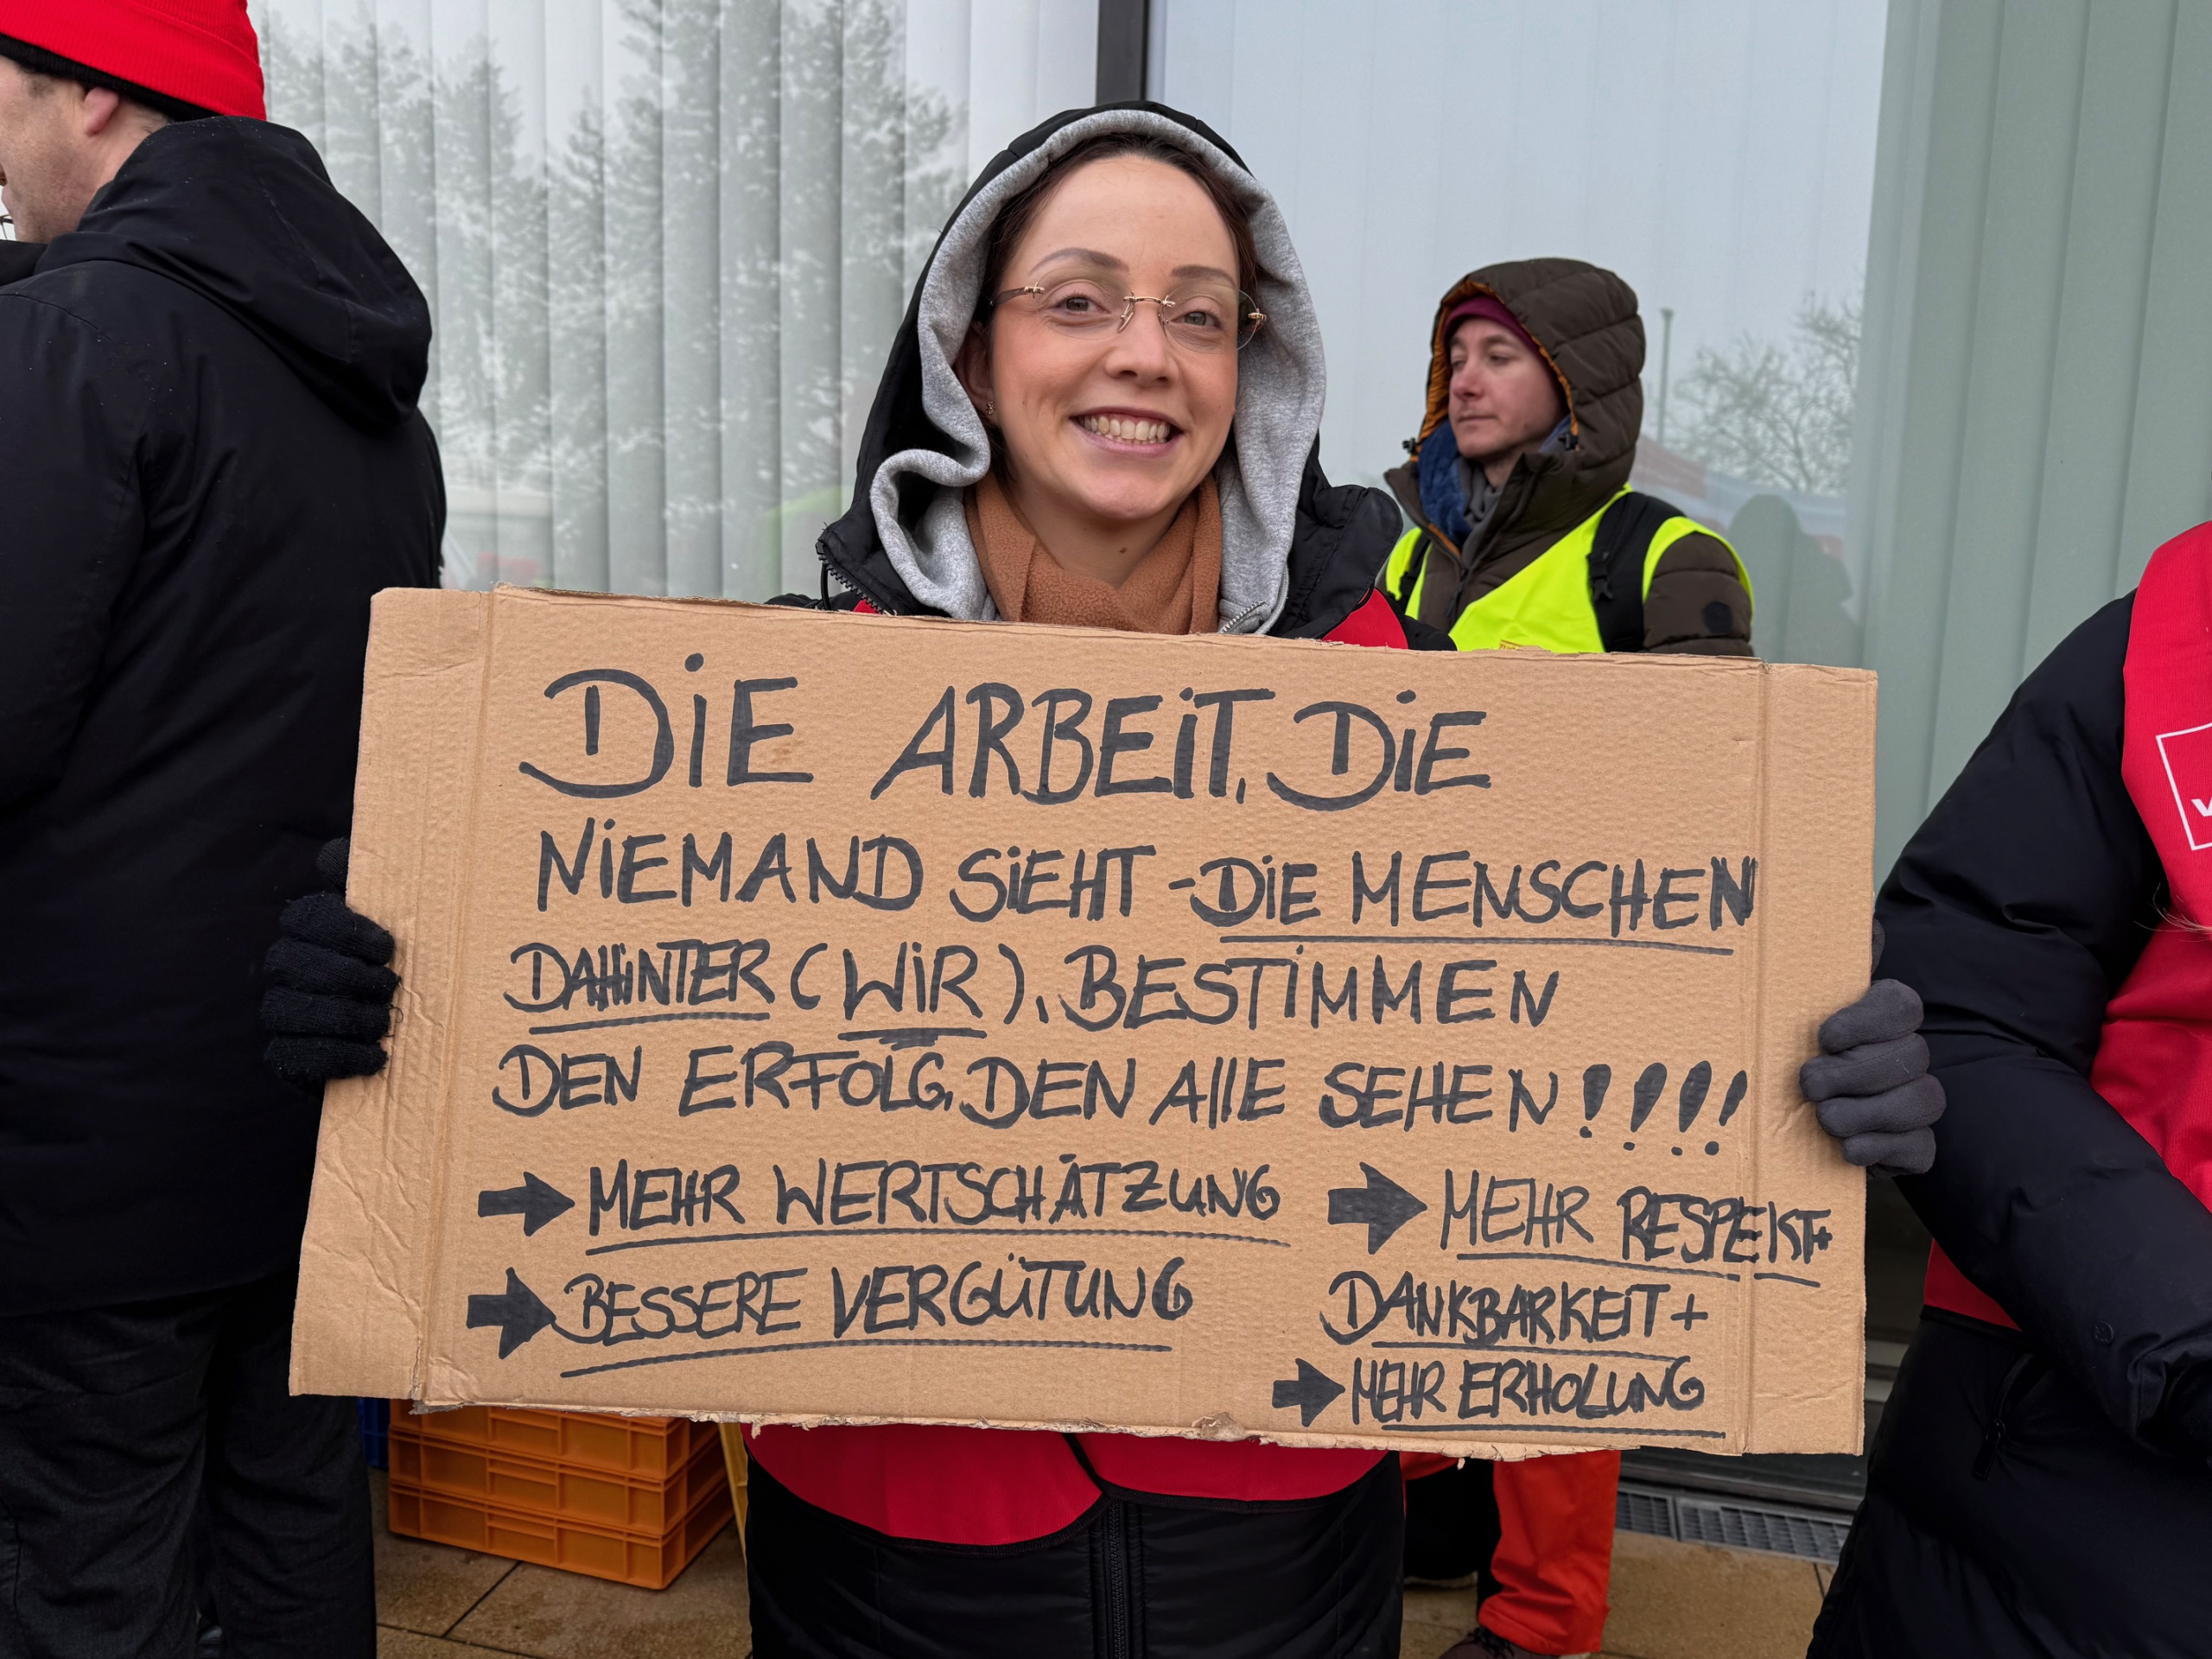 DIE ARBEIT, DIE
NIEMAND SIEHT - DIE MENSCHEN
DAHINTER (WIR), BESTIMMEN
DEN ERFOLG, DEN AllE SEHEN!!!!
➡ MEHR WERTSCHÄTZUNG
➡ BESSERE VERGÜTUNG
➡ MEHR RESPEKT+
DANKBARKEIT+
➡ MEHR ERHOLUNG